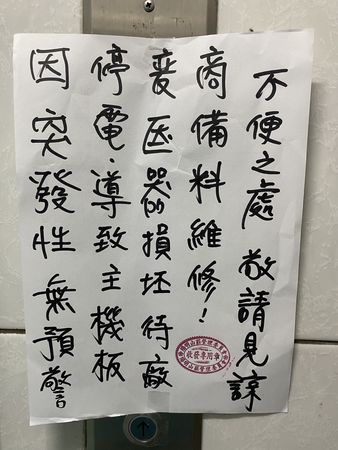 因突發性無預警
停電.導致主機板
变压器的損坯待廠
商備料維修!
不便之處 敬請見諒
收發專用章